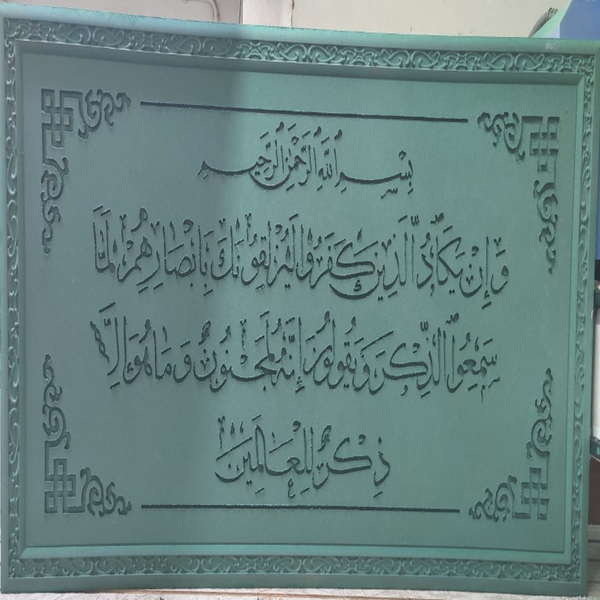 بِسْمِ اللَّهِ الرَّحْمَنِ الرَّحِيمِ
وَإِنْ يَكَادُ الَّذِينَ كَفَرُوا لَيُزْلِقُونَكَ بِأَبْصَارِهِمْ لَمَّا
سَمِعُوا الذِّكْرَ وَيَقُولُونَ إِنَّهُ لَمَجْنُونٌ وَمَا هُوَ إِلَّا
ذِكْرٌ لِلْعَالَمِينَ